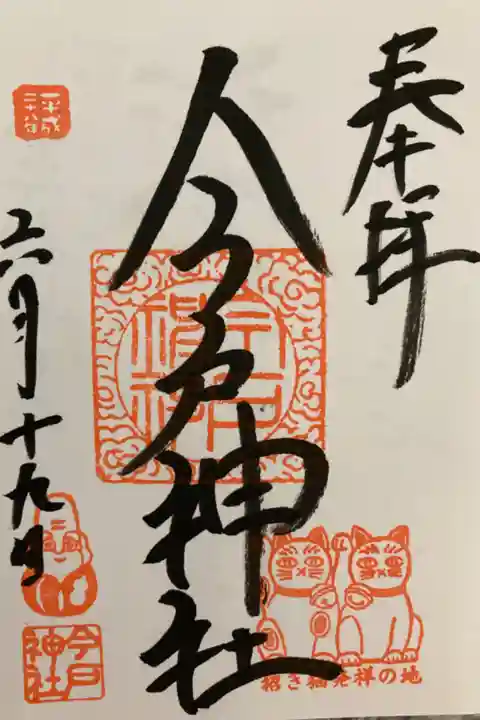 奉拝
今戸神社
今戸神社
招き猫発祥の地
平成二十八年
六月十九日
今戸神社